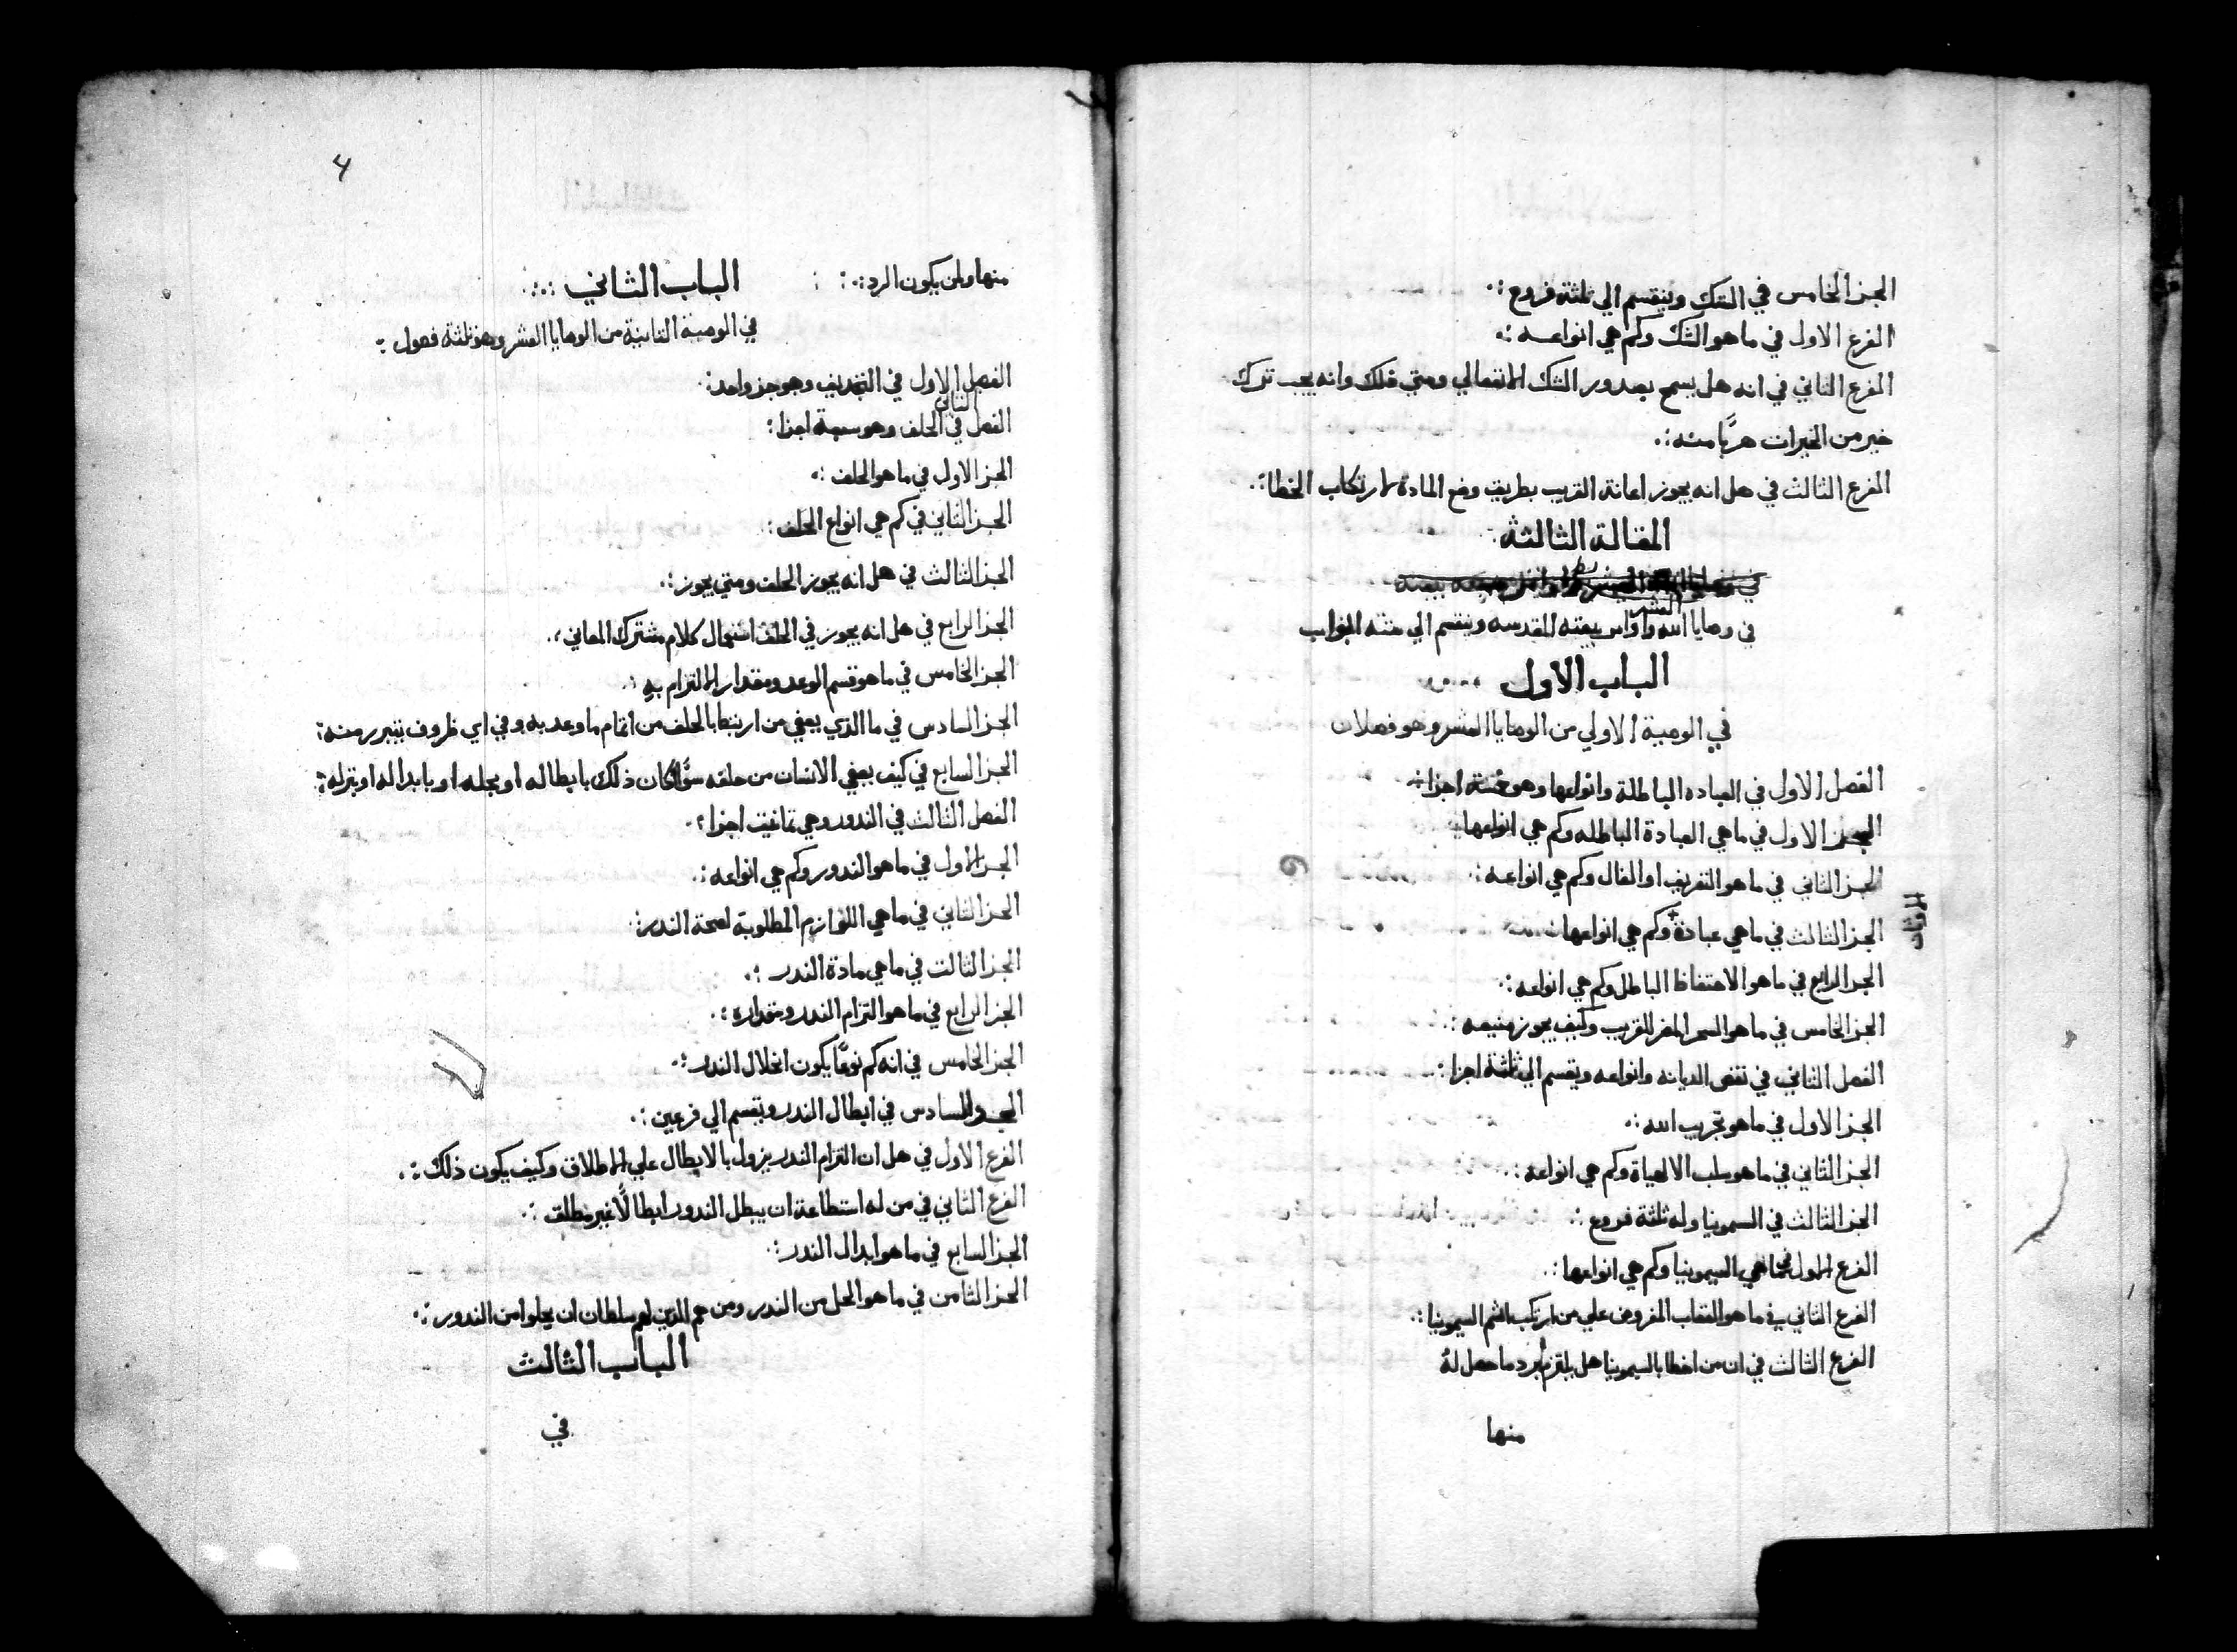 الجزا الخامس في الشك وينقسم الي ثلثة فروع :.
الفرع الاول في ما هو الشك وكم هي انواعه :.
الفرع الثاني في انه هل يسمح بصدور الشك الانفعالي ومتي وانه يجب ترك
خير من الخيرات هربًا منه :.
الفرع الثالث في هل انه يجوز اعانة القريب بطريق وضع المادة لارتكاب الخطا :.
المقالة الثالثة
في وصايا الله العشر واوامر بيعته المقدسه وينقسم الي ستة ابواب
الباب الاول
في الوصية الاولي من الوصايا العشر وهو فصلان
الفصل الاول في العباده الباطلة وانواعها وهو خمسة اجزا :
الجز الاول في ما هي العبادة الباطله وكم هي انواعها :
الجز الثاني في ما هو التعريف او الفال وكم هي انواعه :.
الجز الثالث في ما هي عبادة + وكم هي انواعها :
الاوثان
الجز الرابع في ما هو الاحتفاظ الباطل وكم هي انواعه :.
الجز الخامس في ما هو السحر المضر للقريب وكيف يجوز منيعه :.
الفصل الثاني في نقض الديانه وانواعه ويقسم الي ثلثة اجزا :
الجز الاول في ما هو تجريب الله :.
الجز الثاني في ما هو سلب الالهياة وكم هي انواعه :.
الجز الثالث في السمونيا وله ثلثة فروع :.
الفرع الاول في ما هي السيمونيا وكم هي انواعها :.
الفرع الثاني في ما هو العقاب المفروض علي من ارتكب اثم السيمونيا :.
الفرع الثالث في ان من اخطا بالسيمونيا هل يلتزم برد ما حصل له
منها
4
منها ولمن يكون الرد :.
الباب الثاني :.
في الوصية الثانية من الوصايا العشر وهو ثلثة فصول :
الفصل الاول في التجديف وهو جز واحد :.
الفصل الثاني في الحلف وهو سبعة اجزا :
الجز الاول في ما هو الحلف :.
الجز الثاني في كم هي انواع الحلف :
الجز الثالث في هل انه يجوز الحلف ومتي يجوز :.
الجز الرابع في هل انه يجوز في الحلف استعمال كلام مشترك المعاني :.
الجز الخامس في ما هو قسم الوعد ومقدار الالتزام به :.
الجز السادس في ما الذي يعفي من ارتبط بالحلف من اتمام ما وعد به وفي اي ظروف يتبرر منه :
الجز السابع في كيف يعفي الانسان من حلفه سوًا كان ذلك بابطاله او بحله او بابداله او بتركه :
الفصل الثالث في الندور وهي ثمانية اجزا :.
الجز الاول في ما هو الندور وكم هي انواعه :.
الجز الثاني في ما هي اللوازم المطلوبة لصحة الندر :.
الجز الثالت في ما هي مادة الندر :.
الجز الرابع في ما هو التزام الندر ومقداره :.
الجز الخامس في انه كم نوعًا يكون انحلال الندر :.
الجز السادس في ابطال الندر ويقسم الي فرعين :.
الفرع الاول في هل ان التزام الندر يزول بالابطال علي الاطلاق وكيف يكون ذلك :.
الفرع الثاني في من له استطاعة ان يبطل الندور ابطالًا غير مطلق :.
الجز السابع في ما هو ابدال الندر :.
الجز الثامن في ما هو الحل من الندر ومن هم الذين لهم سلطان ان يحلوا من الندور :.
الباب الثالث
في